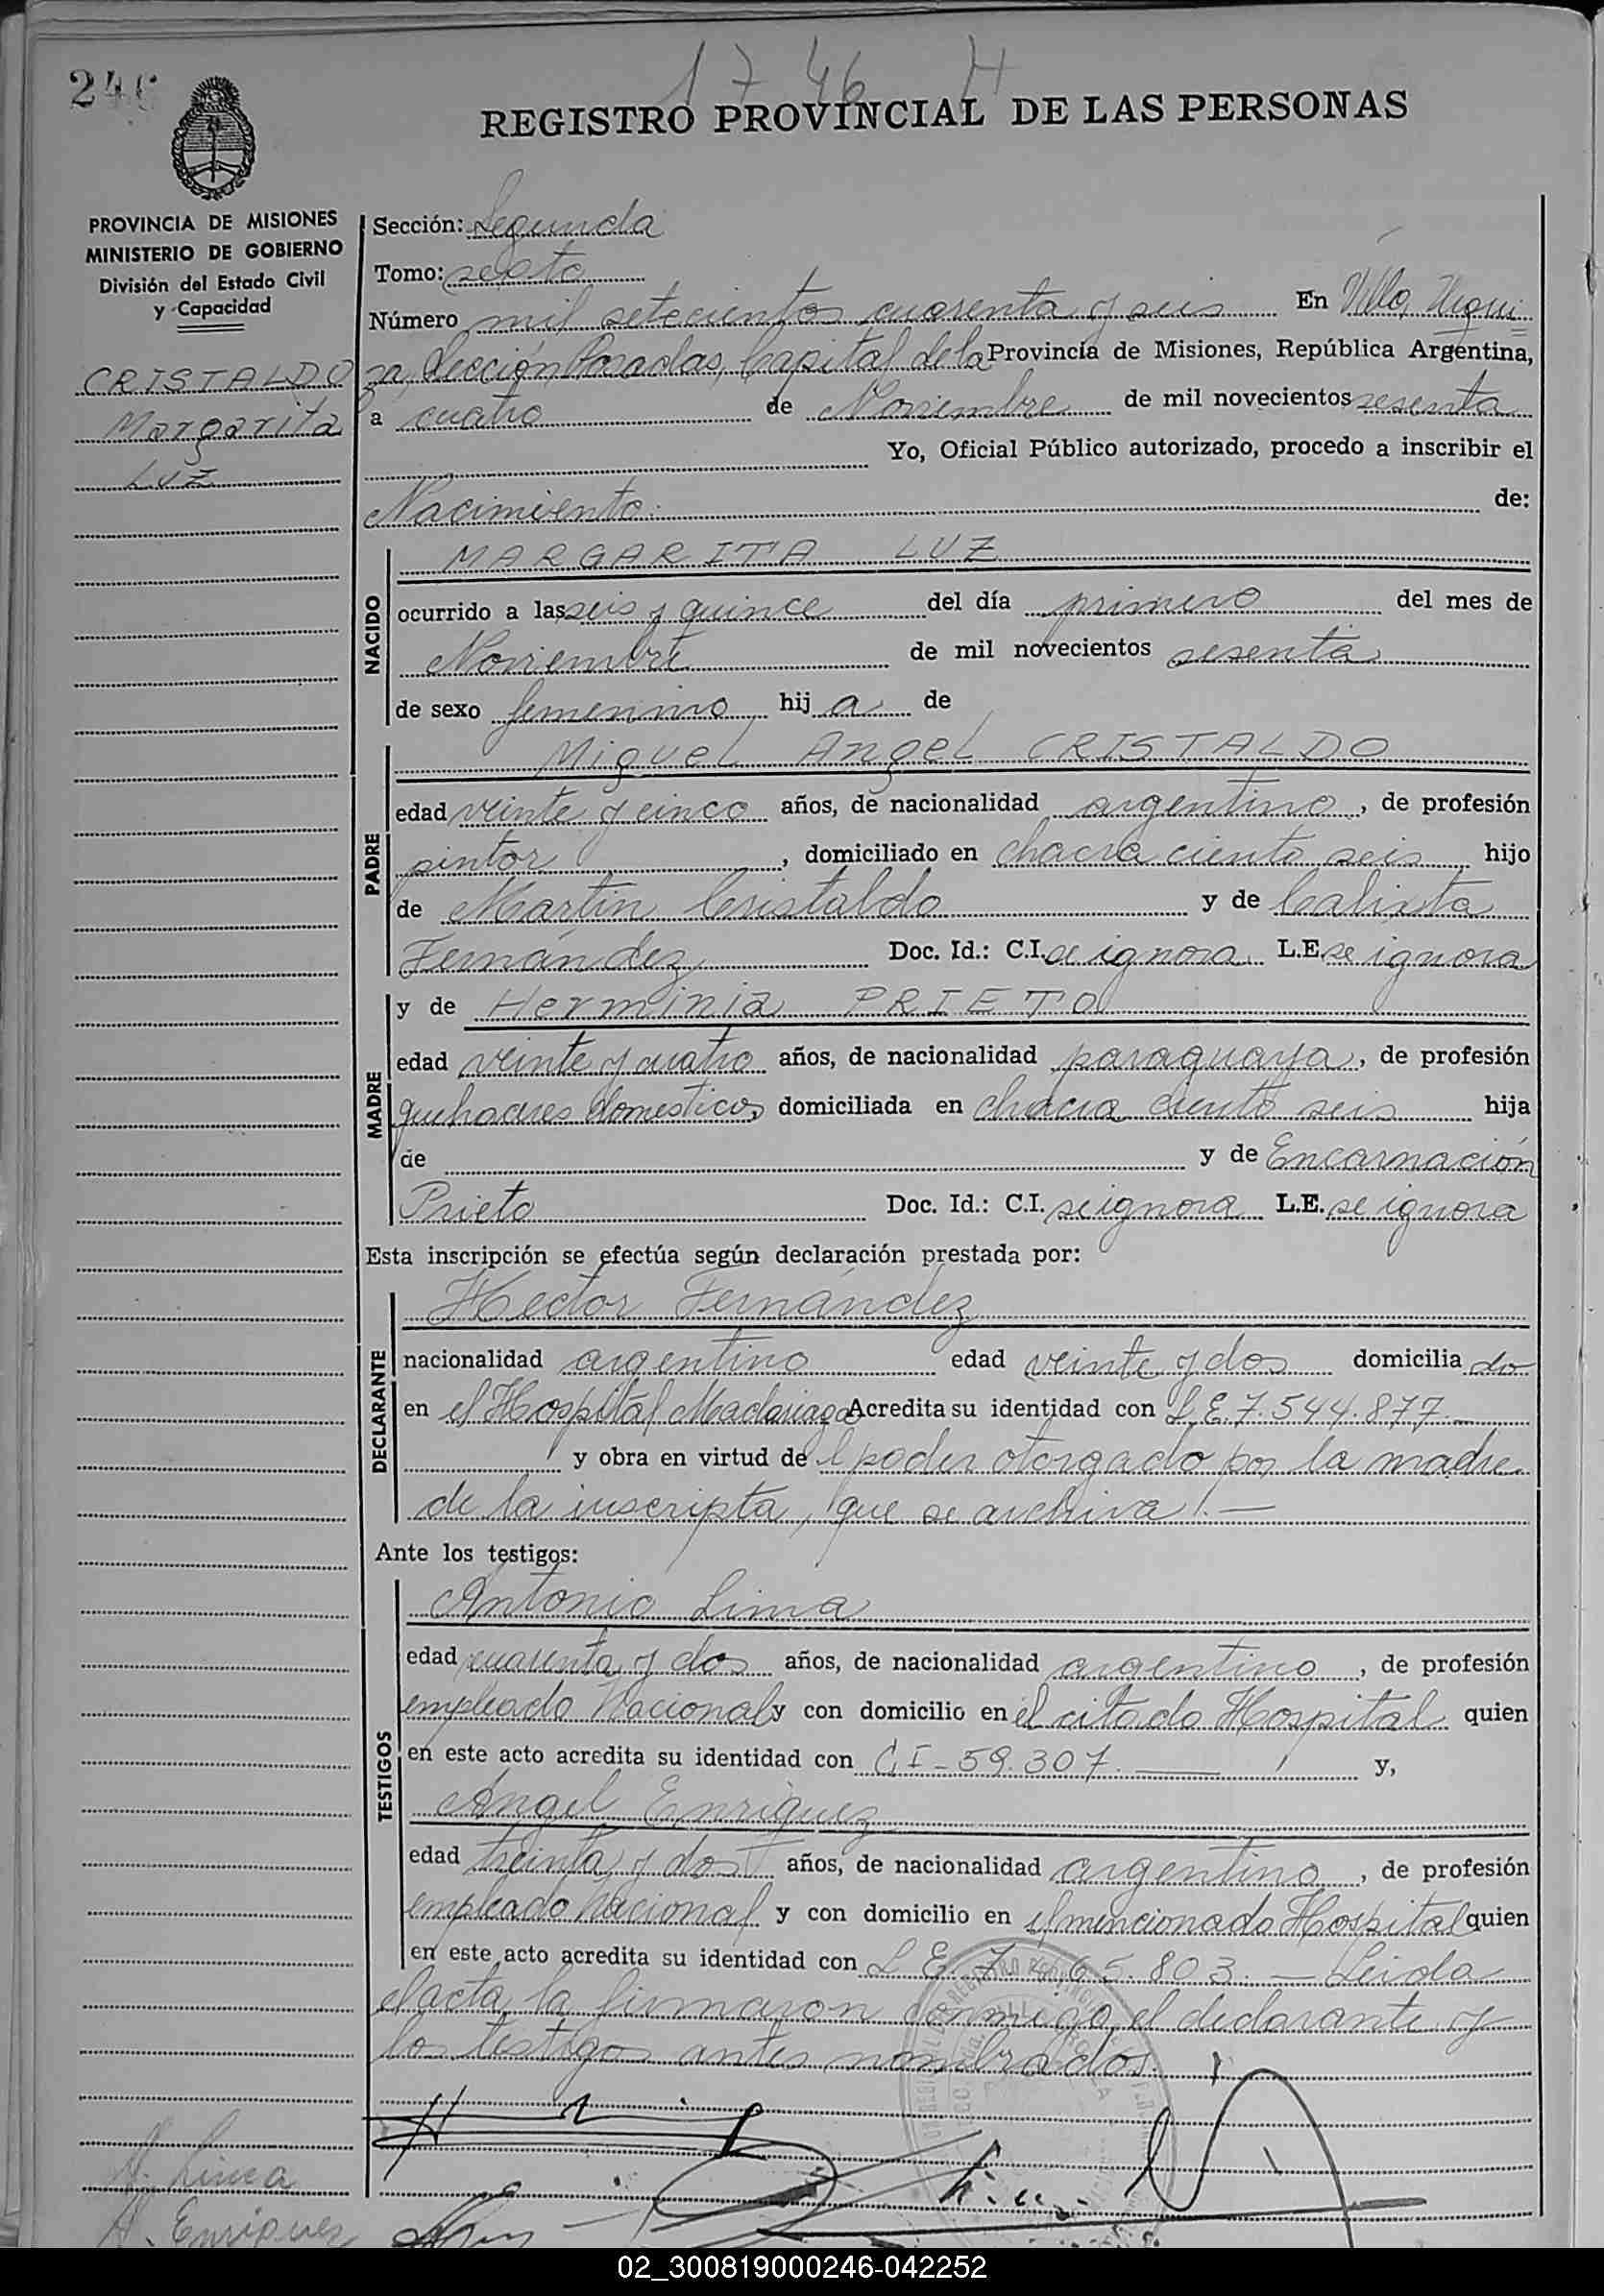 1746 H
246
REGISTRO PROVINCIAL DE LAS PERSONAS
PROVINCIA DE MISIONES
MINISTERIO DE GOBIERNO
División del Estado Civil
y Capacidad
CRISTALDO
Margarita
Luz
Sección: Segunda
Tomo: sexto
Número mil setecientos cuarenta y seis En Villa Urqui
za, Sección Posadas, Capital de la Provincia de Misiones, República Argentina,
a cuatro de Noviembre de mil novecientos sesenta
Yo, Oficial Público autorizado, procedo a inscribir el
Nacimiento de:
NACIDO
MARGARITA LUZ
ocurrido a las seis y quince del día primero del mes de
Noviembre de mil novecientos sesenta
de sexo femenino hija de
PADRE
Miguel Angel CRISTALDO
edad veinte y cinco años, de nacionalidad argentino, de profesión
pintor, domiciliado en chacra ciento seis hijo
de Martín Cristaldo y de Calixta
Fernández Doc. Id.: C.I. se ignora L.E. se ignora
MADRE
y de Herminia PRIETO
edad veinte y cuatro años, de nacionalidad paraguaya, de profesión
quehaceres domesticos, domiciliada en chacra ciento seis hija
de y de Encarnación
Prieto Doc. Id.: C.I. se ignora L.E. se ignora
Esta inscripción se efectúa según declaración prestada por:
DECLARANTE
Hector Fernández
nacionalidad argentino edad veinte y dos domiciliado
en el Hospital Madariaga Acredita su identidad con L.E. 7.544.877.
y obra en virtud del poder otorgado por la madre
de la inscripta, que se archiva.—
Ante los testigos:
TESTIGOS
Antonio Lima
edad cuarenta y dos años, de nacionalidad argentino, de profesión
empleado Nacional y con domicilio en el citado Hospital quien
en este acto acredita su identidad con C.I - 59.307. y,
Angel Enriquez
edad treinta y dos años, de nacionalidad argentino, de profesión
empleado Nacional y con domicilio en el mencionado Hospital quien
en este acto acredita su identidad con L E. 65.803. — Leida
el acta, la firmaron conmigo, el declarante y
los testigos antes nombrados.
A. Lima
A. Enriquez
02_300819000246-042252